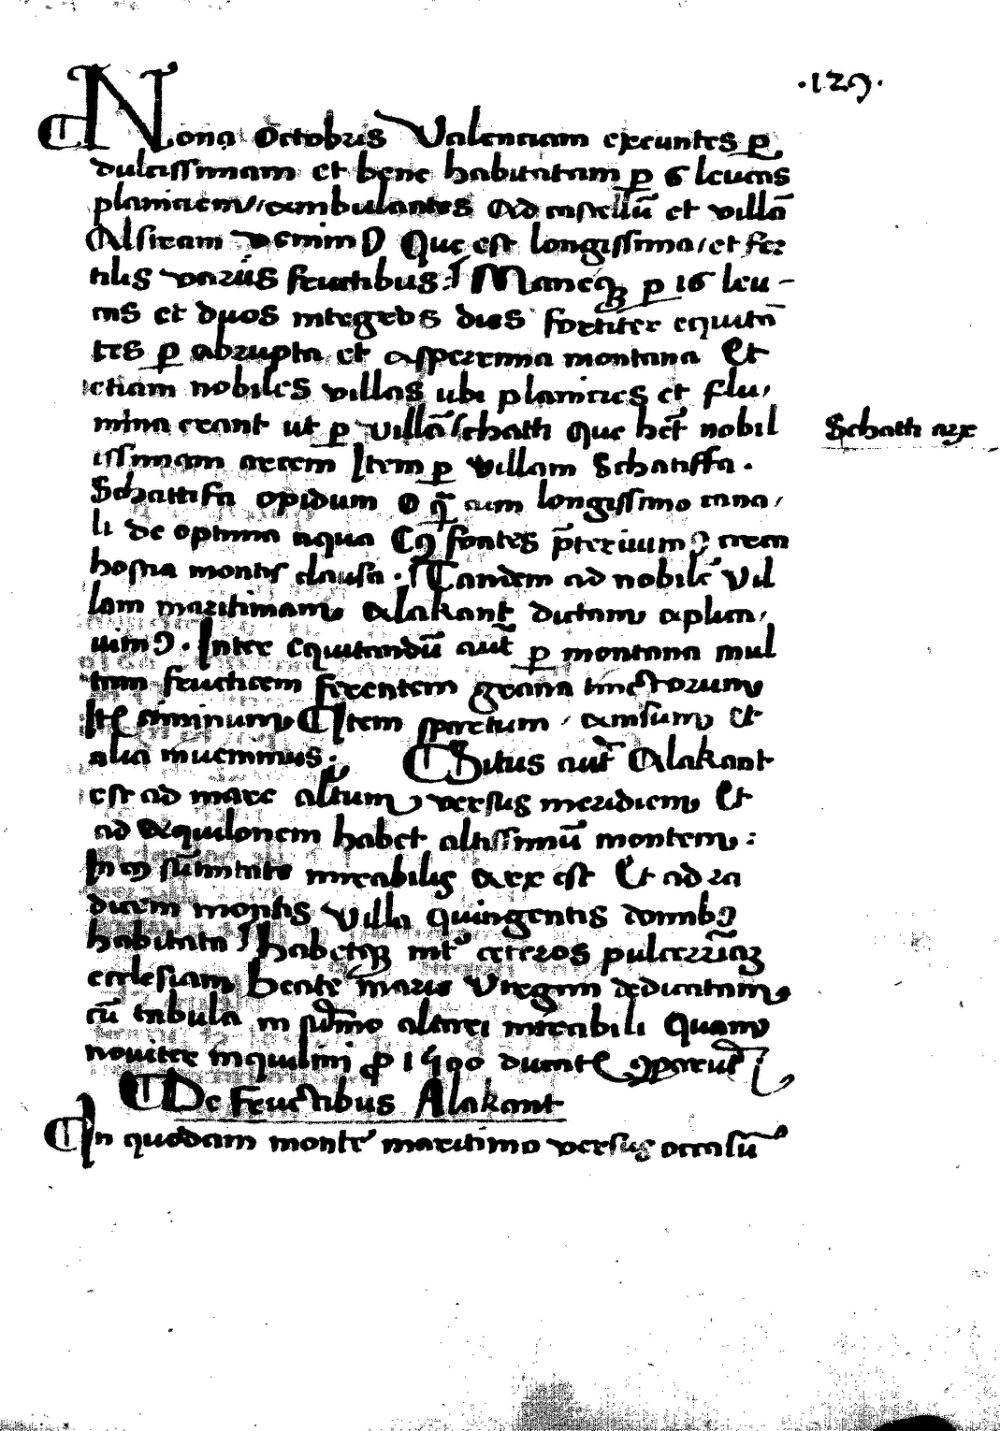 ·129·
Nona Octobris Valenciam exeuntes p̱
dulcissimam et bene habitatam p̱ 6 leucas
planiciem / ambulantes Ad castellū et villā
Alsiram venimꝰ Que est longissima / et fer
tilis variis fructibus: Maneqꝫ p̱ 16 leu-
cas et duos integros dies fortiter equitā
tes p̱ abrupta et asperrima montana Et
etiam nobiles villas ubi planicies et flu,
mina erant ut p̱ villā schath Que het̄ nobil
Schath arx
issimam arcem Item p̱ villam Schatiffa.
Schattifa opidum o cum longissimo cana,
li de optima aqua fontes p̄teriuimꝰ
hostia montis clausa. Tandem ad nobilē vil
lam maritimam Alakant dictam aplica,
uimꝰ. Inter equitandū aut̄ p̱ montana mul
tam fructicem ferentem grana tinctorum
Itē ciminum Item spartum, anisum et
alia inuenimus. Situs aut̄ Alakant
est ad mare altum versus meridiem Et
ad Aquilonem habet altissimū montem:
In cꝰ sūmitate mirabilis Arx est Et ad ra
dicem montis villa quingentis domibꝰ
habitata habetqꝫ int̄ ceteros pulcerrimā
ecclesiam Beate marie Virgini dedicatam
cū tabula in sūmo altari mirabili Quam
nouiter inquilini ꝓ 1400 ducatꝭ ꝯpararūt
De fructibus Alakant
In quodam monte maritimo versus occasū